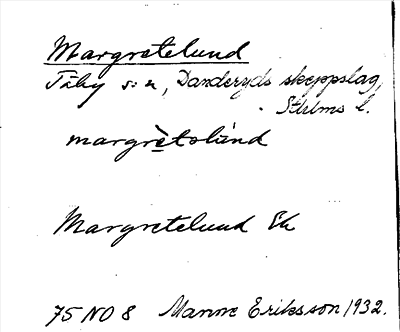 Margretelund
Täby s:n, Danderyds skeppslag,
Sthlms l.
margrètslùnd
Margretelund Ek
75 NO 8 Manne Eriksson 1932.